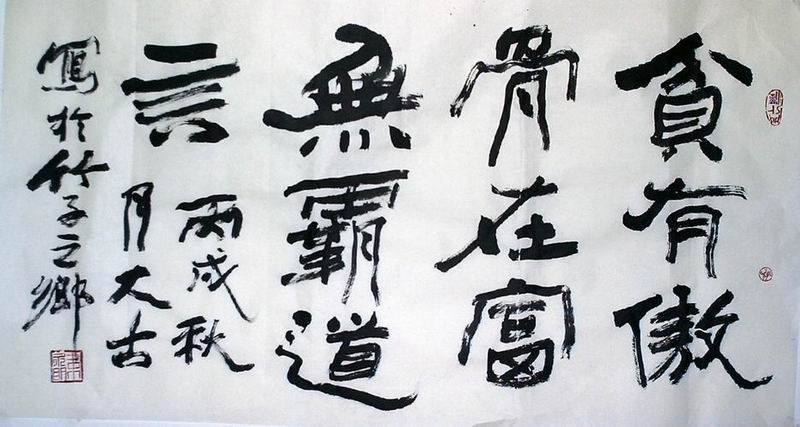 貧有傲
骨在富
無霸道
言
丙戌秋
月大古
寫於竹子之鄉